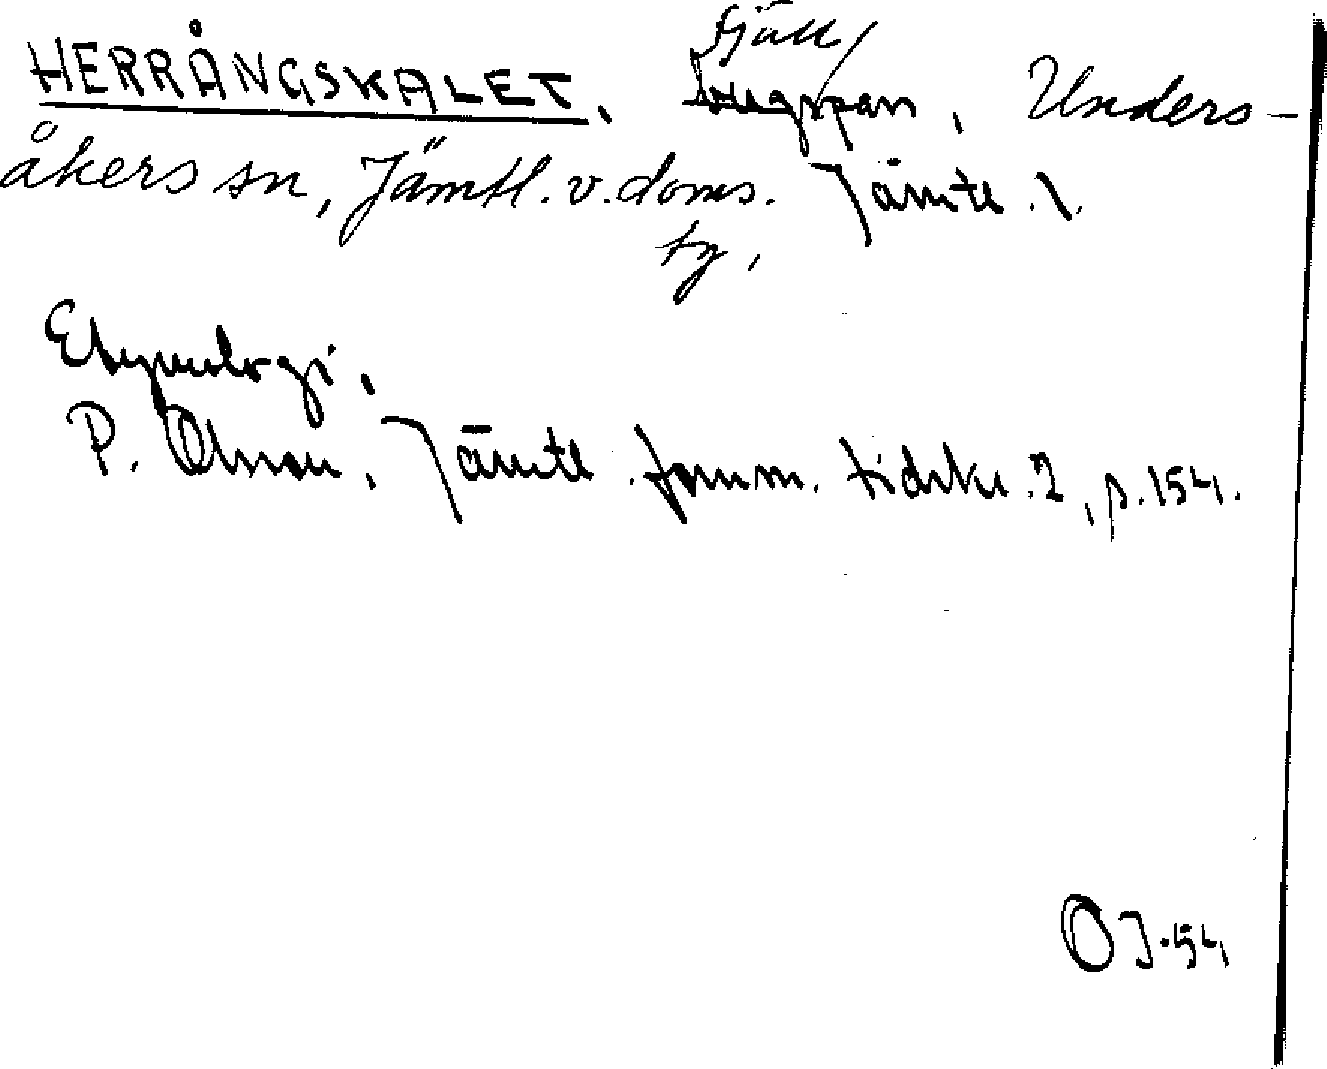 fjäll/
HERRÅNGSKALET. bergspass, Unders-
åkers sn, Jämtl. v. doms. Jämtl. l.
tg,
Etymologi.
P. Olsson, Jämtl. fornm. tidskr. 2, p. 154.
OJ-54